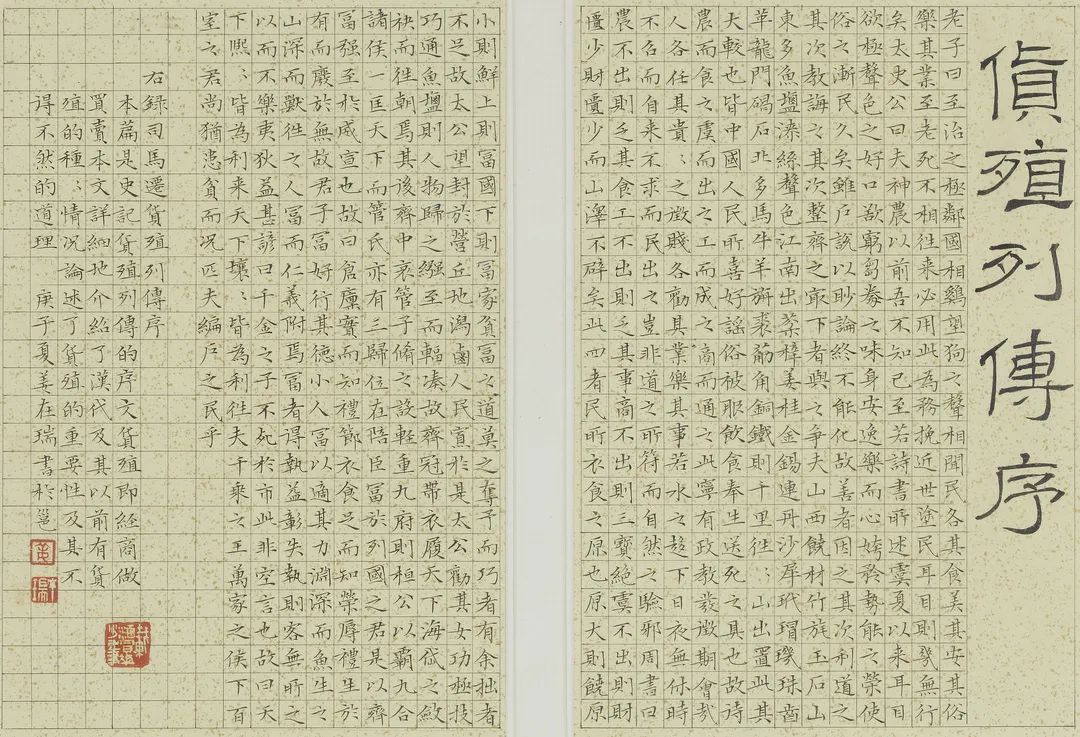 貨殖列傳序
老子曰至治之極鄰國相鷄望狗之聲相聞民各其食美其安其俗
樂其業至老死不相徃来必用此為務挽近世塗民耳目則幾無行
矣太史公曰夫神農以前吾不知已至若詩書所述虞夏以来耳目
欲極聲色之好口欲窮芻豢之味身安逸樂而心姱矜勢能之榮使
俗之漸民久矣雖戶說以眇論終不能化故善者因之其次利道之
其次教誨之其次整齊之最下者與之争夫山西饒材竹旄玉石山
東多魚鹽漆絲聲色江南出枏梓姜桂金錫連丹沙犀玳瑁璣珠齒
革龍門碣石北多馬牛羊旃裘筋角銅鐵則千里徃〻山出置此其
大較也皆中國人民所喜好謡俗被服飲食奉生送死之具也故待
農而食之虞而出之工而成之商而通之此寧有政教發徵期會哉
人各任其貴〻之徵賤各勸其業樂其事若水之趨下日夜無休時
不召而自来不求而民出之豈非道之所符而自然之驗邪周書曰
農不出則乏其食工不出則乏其事商不出則三寶絶虞不出則財
匱少財匱少而山澤不辟矣此四者民所衣食之原也原大則饒原
小則鮮上則富國下則富家貧富之道莫之奪予而巧者有余拙者
不足故太公望封於營丘地潟鹵人民寡於是太公勸其女功極技
巧通魚鹽則人物歸之繦至而輻湊故齊冠帶衣履天下海岱之斂
袂而徃朝焉其後齊中衰管子脩之設輕重九府則桓公以霸九合
諸侯一匡天下而管氏亦有三歸位在陪臣富於列國之君是以齊
富强至於威宣也故曰倉廩實而知禮節衣食足而知榮辱禮生於
有而廢於無故君子富好行其德小人富以適其力淵深而魚生之
山深而獸徃之人富而仁義附焉富者得執益彰失執則客無所之
以而不樂夷狄益甚諺曰千金之子不死於市此非空言也故曰天
下熙〻皆為利来天下壤〻皆為利徃夫千乘之王萬家之侯下百
室之君尚猶患貧而况匹夫編戶之民乎
右録司馬遷貨殖列傳序
本篇是史記貨殖列傳的序文貨殖即經商做
買賣本文詳細地介紹了漢代及其以前有貨
殖的種〻情况論述了貨殖的重要性及其不
得不然的道理　庚子夏姜在瑞書於邕